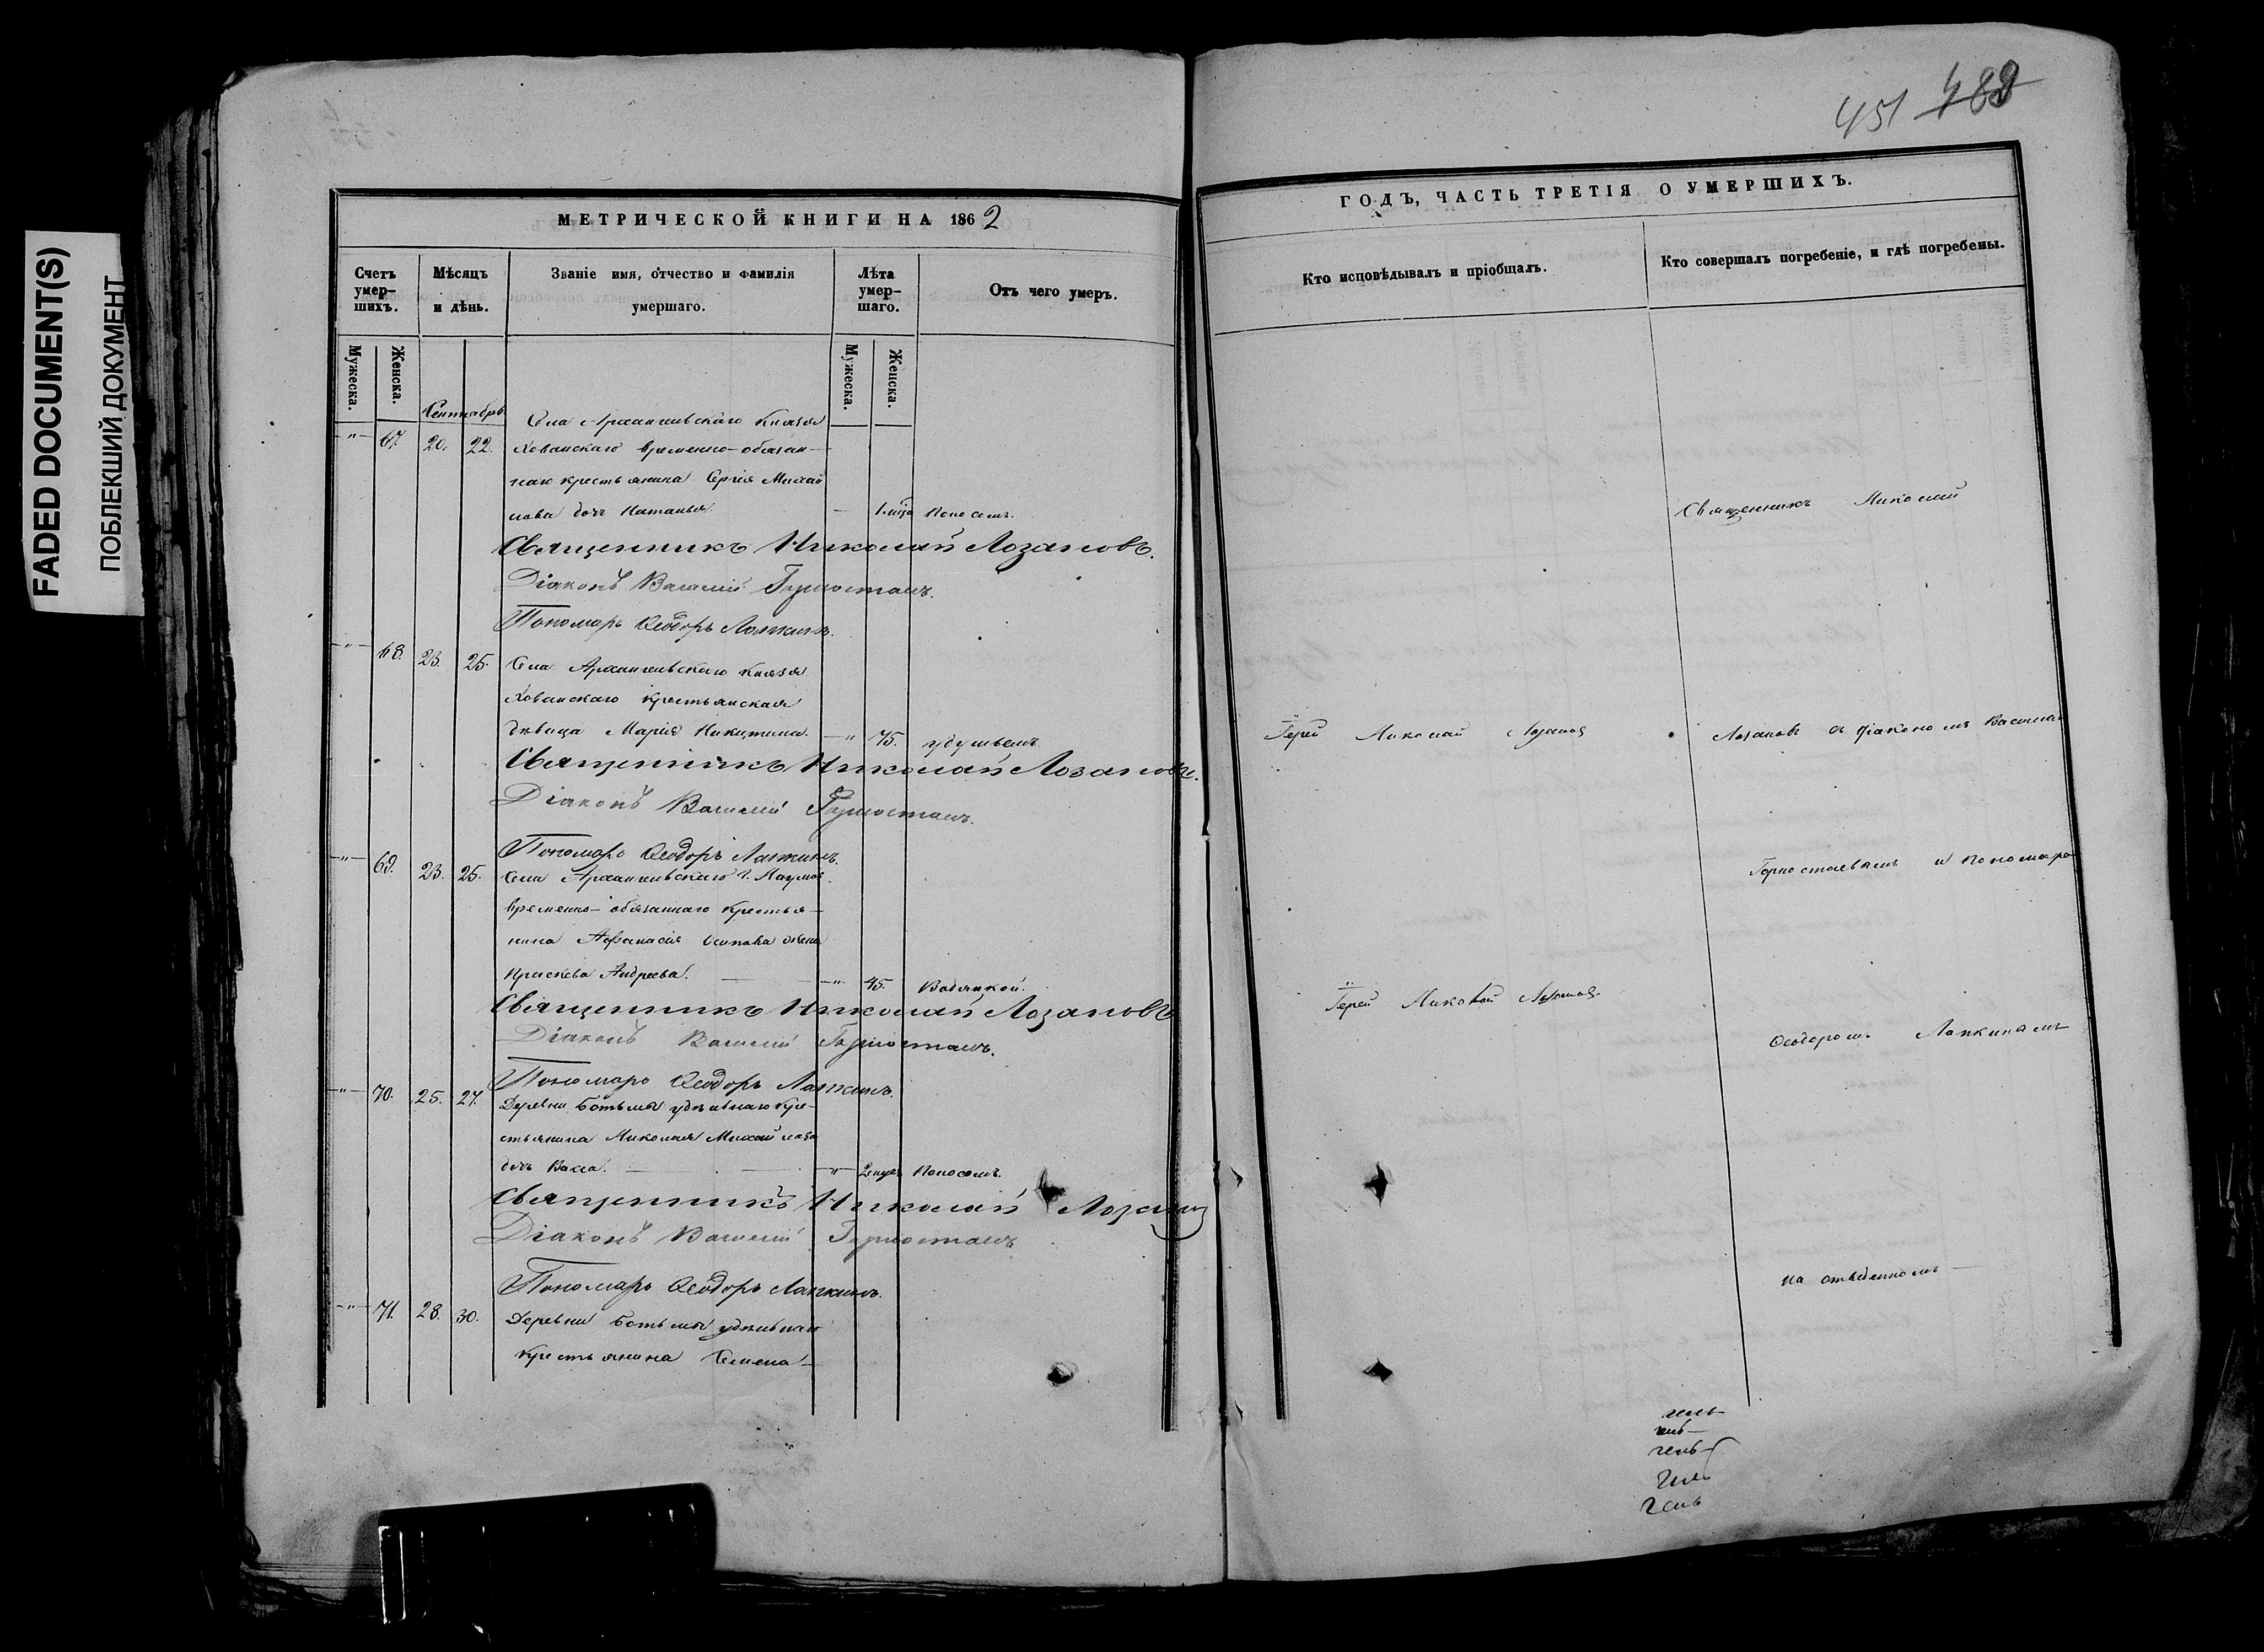 FADED DOCUMENT(S)
ПОБЛЕКШИЙ ДОКУМЕНТ
МЕТРИЧЕСКОЙ КНИГИ НА 1862
Счетъ умер-шихъ.
Мѣсяцъ и дѣнь.
Званіе имя, отчество и фамилія умершаго.
Лѣта умер-шаго.
Отъ чего умеръ.
Мужеска.
Женска.
Мужеска.
Женска.
Сентябрь
Села Архангельскаго Князя
67. 20. 22. Хованскаго временно-обязан-
наго крестьянина Сергія Михай
лова дочь Наталья 1 мѣс. Поносомъ.
Священникъ Николай Лозановъ.
Діаконъ Василій Горностаевъ.
Пономарь Ѳеодоръ Лапкинъ.
68. 23. 25. Села Архангельскаго Князя
Хованскаго крестьянская
дѣвица Марія Никитина. 75. удушьемъ
Священникъ Николай Лозановъ.
Діаконъ Василій Горностаевъ.
Пономарь Ѳеодоръ Лапкинъ.
69. 23. 25. Села Архангельскаго Г. Наумова
временно-обязаннаго крестья-
нина Афанасія Осипова жена
Праскева Андреева. 45. Водянкой.
Священникъ Николай Лозановъ
Діаконъ Василій Горностаевъ.
Пономарь Ѳеодоръ Лапкинъ.
70. 25. 27. Деревни Ботьмы удѣльнаго кре-
стьянина Николая Михайлова
дочь Васса. Поносомъ.
Священникъ Николай Лозановъ
Діаконъ Василій Горностаевъ
Пономарь Ѳеодоръ Лапкинъ.
71. 28. 30. Деревни Ботьмы удѣльнаго
крестьянина Семена
451 488
ГОДЪ, ЧАСТЬ ТРЕТІЯ О УМЕРШИХЪ.
Кто исповѣдывалъ и пріобщалъ.
Кто совершалъ погребеніе, и гдѣ погребены.
Священникъ Николай
Іерей Николай Лозановъ
Лозановъ съ діакономъ Василіемъ
Горностаевымъ и пономаремъ
Іерей Николай Лозановъ
Ѳеодоромъ Лапкинымъ
на отведенномъ